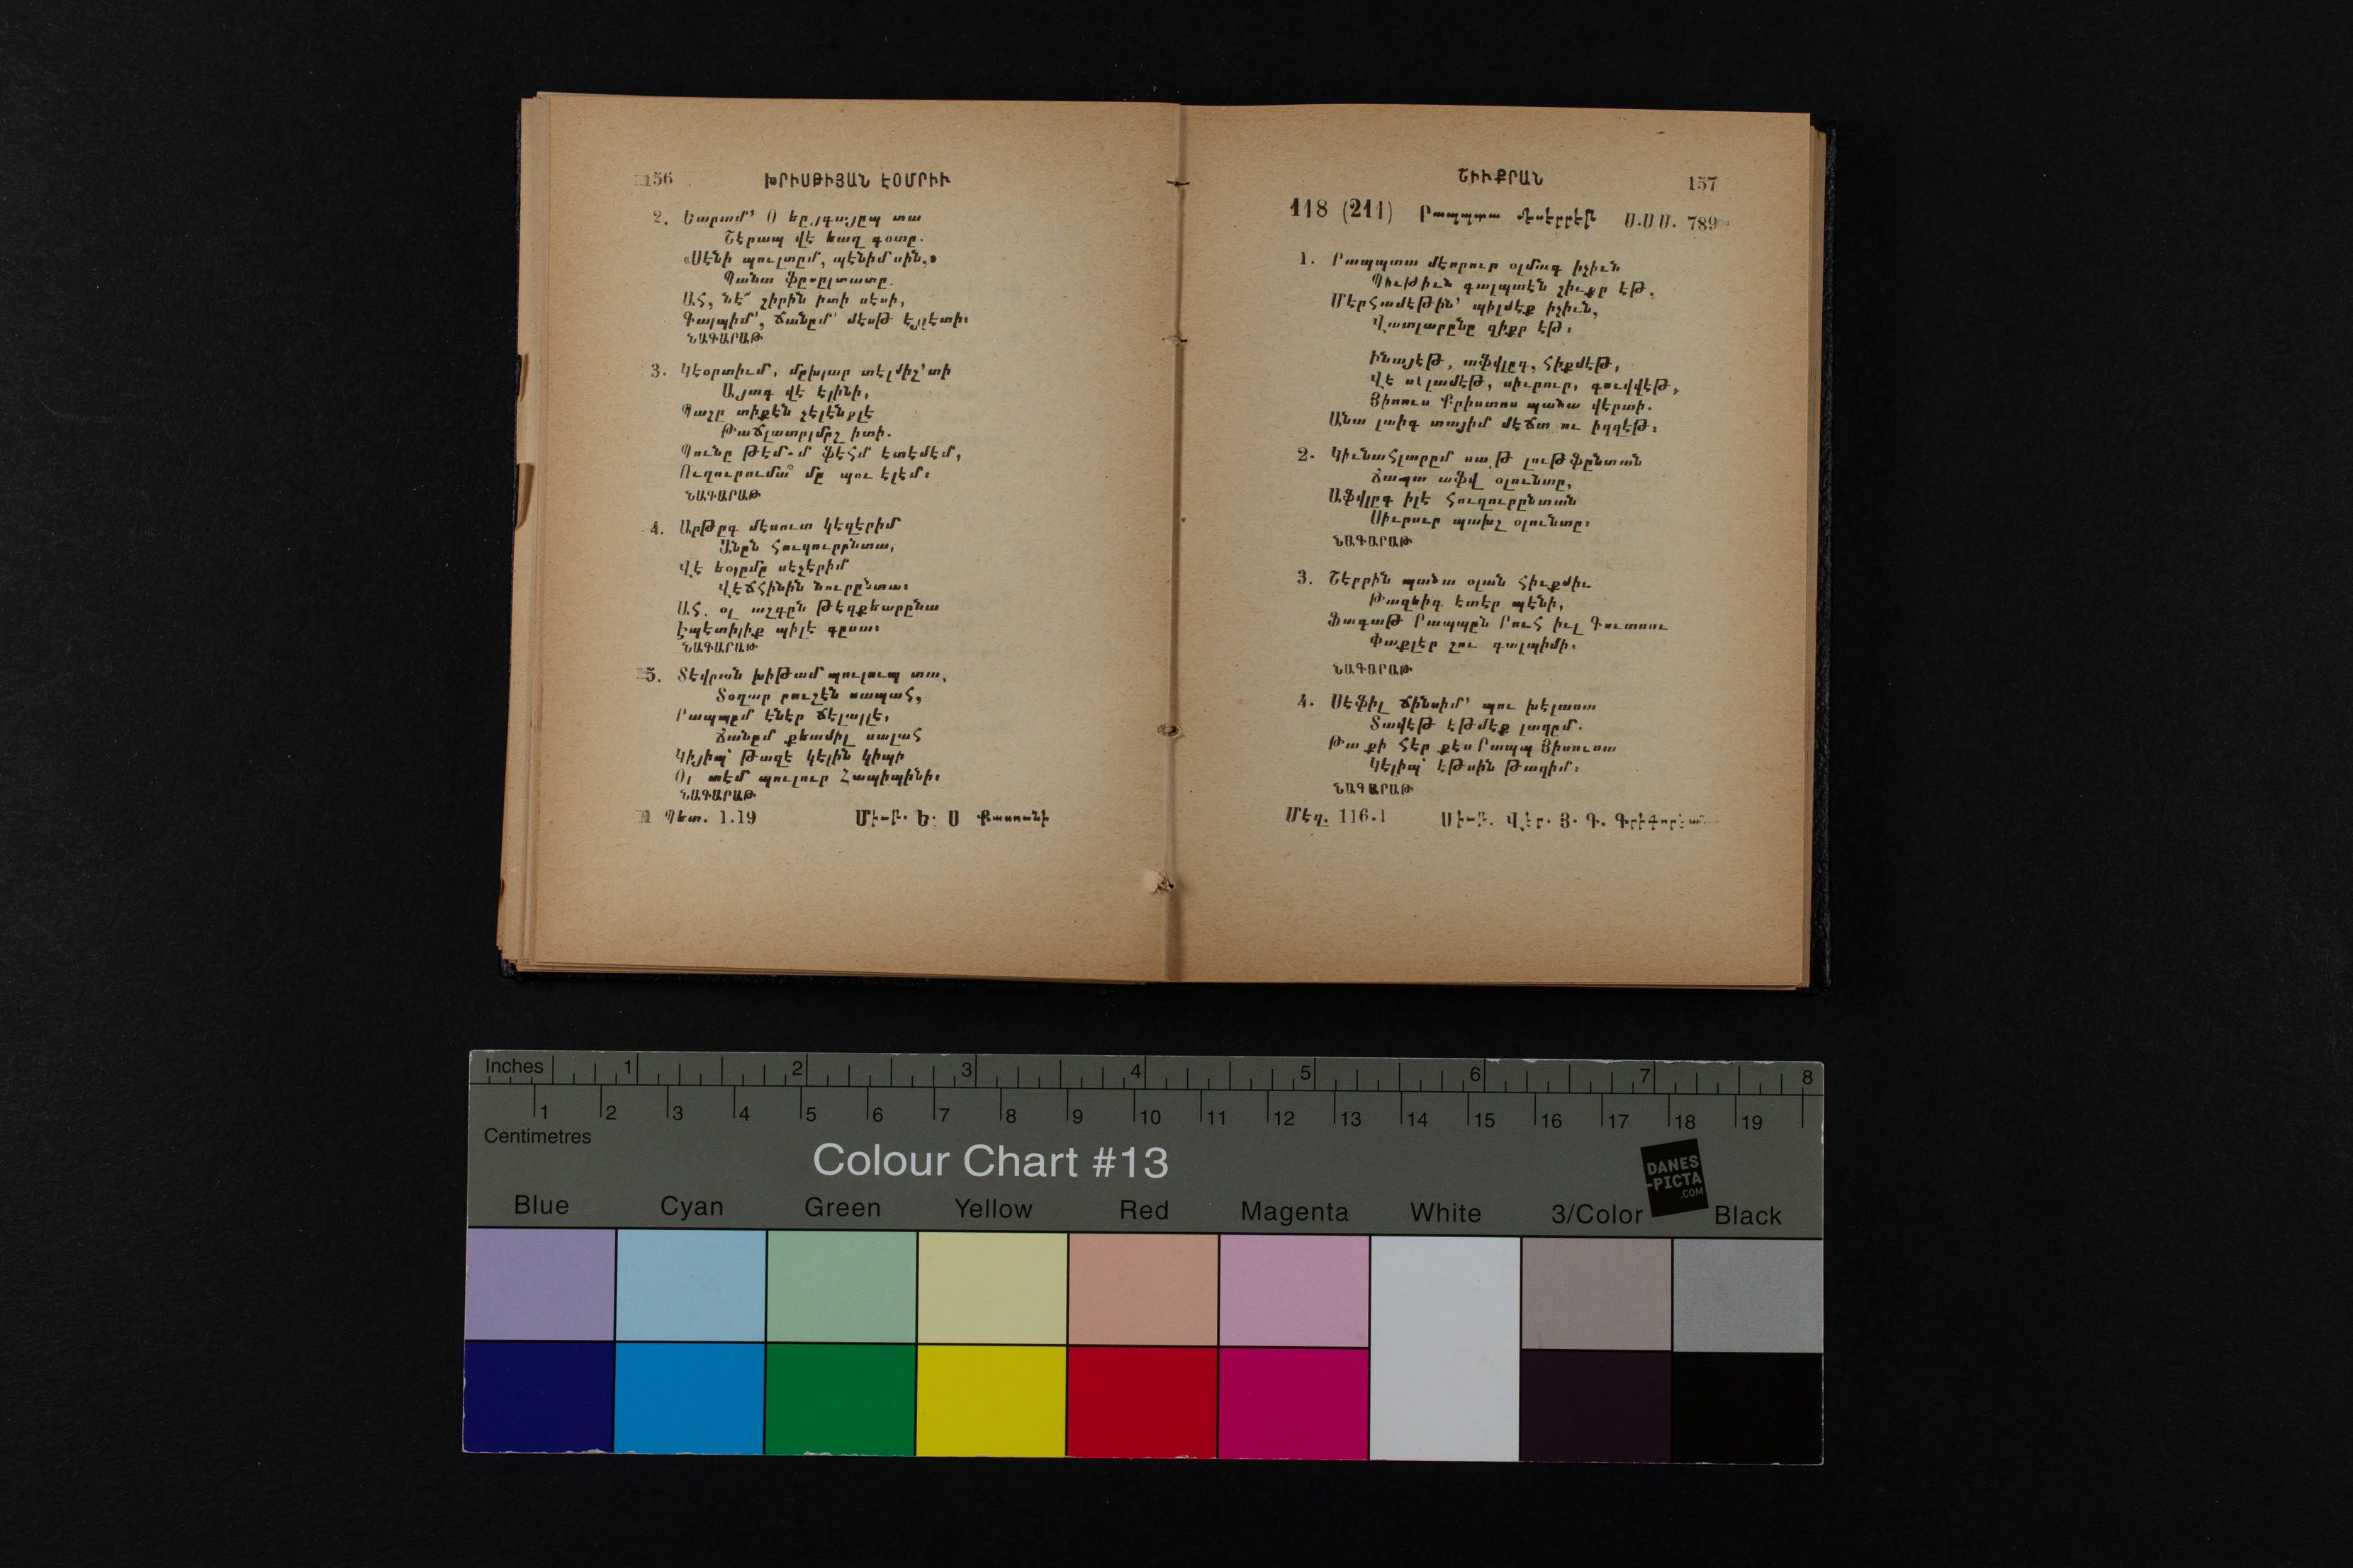 156 ԽՐԻՍԹԻՅԱՆ ԷՕՄՐԻՒ
2. Եարամ՚ Օ եըյգայըպ տա
Շէրապ վէ եաղ գօտը.
«Սէնի պուլտըմ, պէնիմսին,»
Պանա ֆըսըլտատը.
ԱՀ, նէ՜ շիրին իտի սէսի,
Գալպիմ՛, ճանըմ՛ մէսթ էյլէտի։
ՆԱԳԱՐԱԹ
3. Կէօրտիւմ, մըխլար տէլմիշ՚տի
Այագ վէ էլինի,
Պաշը տիքէն չէլէնքլէ
Թաճլատըլմըշ իտի.
Պունը թէմ-մ ֆէՀմ էտէմէմ,
Ուղուրումա՞ մը պու էլէմ։
ՆԱԳԱՐԱԹ
4. Արթըգ մէսուտ կէզէրիմ
Անըն Հուզուրընտա,
Վէ եօլըմը սէչէրիմ
ՎէճՀինին նուրընտա։
ԱՀ. օլ աշգըն թէզքեարընա
Էպէտիլիք պիլէ գըսա։
ՆԱԳԱՐԱԹ
5. Տէվրան խիթամ պուլուպ տա,
Տօղար րուշէն սապաՀ,
Րապպըմ էնէր ճէլալլէ,
Ճանըմ քեամիլ սալաՀ
Կիյիպ՝ թազէ կէլին կիպի
Օլ տէմ պուլուր Հապիպինի։
ՆԱԳԱՐԱԹ
Ա Պետ. 1.19 Մի-Բ. Ե. Ս
ՇԻՒՔՐԱՆ 157
118 (211) Րապպտա Ս.ՍՍ. 789
1. Րապպտա մէսրուր օլմագ իչիւն
Պիւթիւն գալպտէն շիւքր էթ,
ՄէրՀամէթին՝ պիլմէք իչիւն,
Վատլարընը զիքր էթ։
Ինայէթ, աֆվլըգ, Հիքմէթ,
Վէ սէլամէթ, սիւրուր, գուվվէթ,
Յիսուս Քրիստոս պանա վէրտի.
Անա լաիգ տայիմ մէճտ ու իզզէթ։
2. ԿիւնաՀլարըմ սա Թ լութֆընտան
Ճապա աֆվ օլունտը,
Աֆվլըգ իլէ Հուզուրընտան
Սիւրուր պախշ օլունտը։
ՆԱԳԱՐԱԹ
3. Շէրրին պանա օլան Հիւքմիւ
Թազեիգ էտէր պէնի,
Ֆագաթ Րապպըն ՐուՀ իւլ Գուտսու
Փաքլէր շու գալպիմի.
ՆԱԳԱՐԱԹ
4. Սէֆիլ ճինսիմ՚ պու խէլասա
Տավէթ էթմէք լազըմ.
Թա քի Հէր քէս Րապպ Յիսուսա
Կէլիպ՝ էթսին թազիմ։
ՆԱԳԱՐԱԹ
Մէզ. 116.1 Սի-Բ. Վեր. Յ. Գ.
Inches 1 2 3 4 5 6 7 8
1 2 3 4 5 6 7 8 9 10 11 12 13 14 15 16 17 18 19
Centimetres
Colour Chart #13
DANES
-PICTA
.COM
Blue Cyan Green Yellow Red Magenta White 3/Color Black